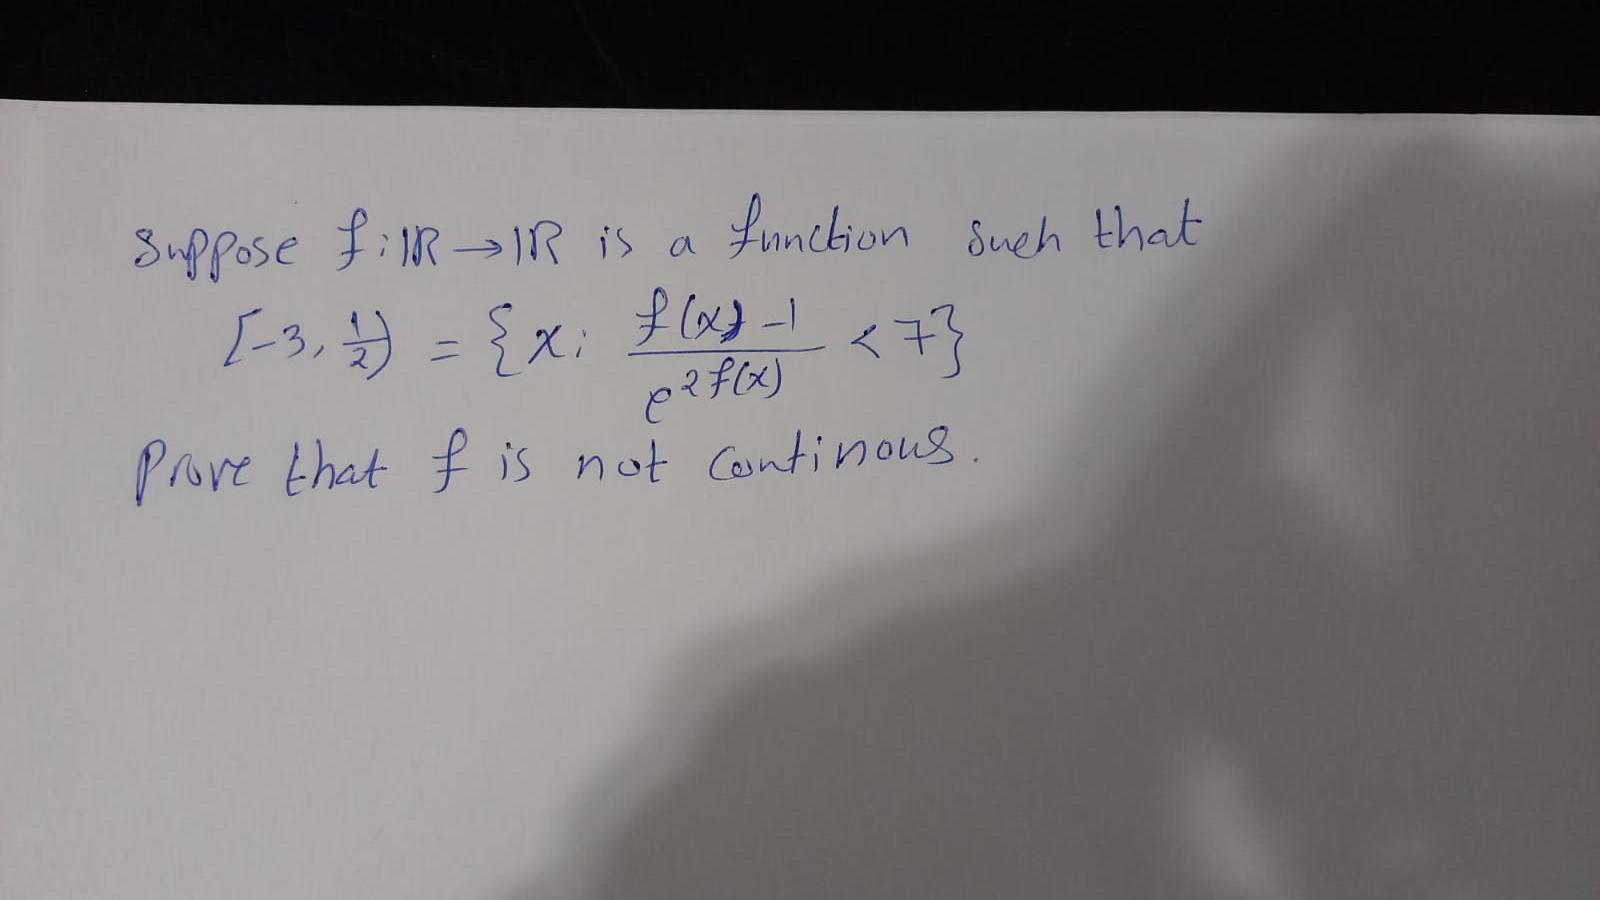 Suppose f: ℝ → ℝ is a function such that
[-3, 1/2) = {x: (f(x)-1)/e^{2f(x)} < 7}
Prove that f is not continous.